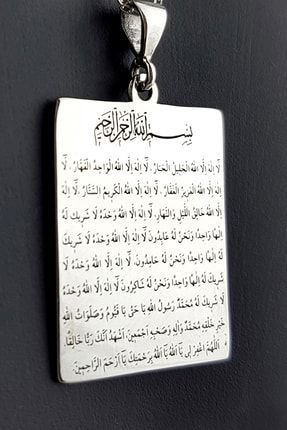 بِسْمِ اللهِ الرَّحْمٰنِ الرَّحِيمِ
لَا اِلٰهَ اِلَّا اللهُ الْجَلِيلُ الْجَبَّارُ، لَا اِلٰهَ اِلَّا اللهُ الْوَاحِدُ الْقَهَّارُ، لَا
اِلٰهَ اِلَّا اللهُ الْعَزِيزُ الْغَفَّارُ، لَا اِلٰهَ اِلَّا اللهُ الْكَرِيمُ السَّتَّارُ، لَا
اِلٰهَ اِلَّا اللهُ خَالِقُ اللَّيْلِ وَالنَّهَارِ، لَا اِلٰهَ اِلَّا اللهُ وَحْدَهُ لَا شَرِيكَ لَهُ
اِلٰهًا وَاحِدًا وَنَحْنُ لَهُ عَابِدُونَ لَا اِلٰهَ اِلَّا اللهُ وَحْدَهُ لَا شَرِيكَ
لَهُ اِلٰهًا وَاحِدًا وَنَحْنُ لَهُ حَامِدُونَ لَا اِلٰهَ اِلَّا اللهُ وَحْدَهُ لَا
شَرِيكَ لَهُ اِلٰهًا وَاحِدًا وَنَحْنُ لَهُ شَاكِرُونَ لَا اِلٰهَ اِلَّا اللهُ وَحْدَهُ
لَا شَرِيكَ لَهُ مُحَمَّدٌ رَسُولُ اللهِ يَا حَيُّ يَا قَيُّومُ وَصَلَوَاتُ اللهِ
خَيْرِ خَلْقِهِ مُحَمَّدٍ وَآلِهِ وَصَحْبِهِ اَجْمَعِينَ، اَشْهَدُ اَنَّكَ رَبًّا خَالِقًا،
اَللّٰهُمَّ اغْفِرْ لِى يَا اَللهُ يَا اَللهُ بِرَحْمَتِكَ يَا اَرْحَمَ الرَّاحِمِينَ.